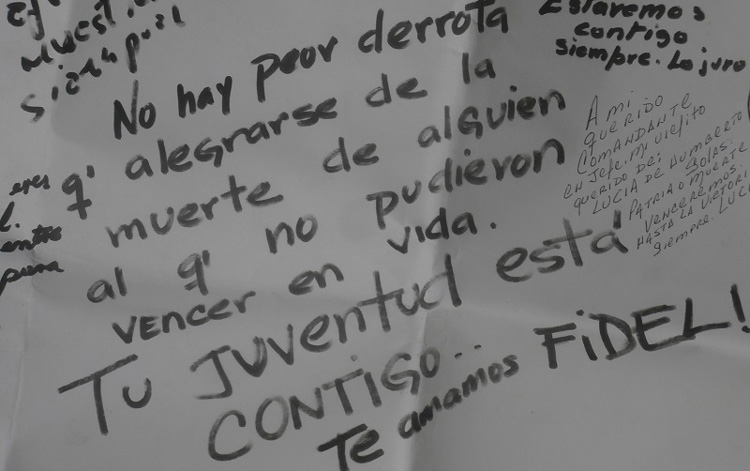 No hay peor derrota
q' alegrarse de la
muerte de alguien
al q' no pudieron
vencer en vida.
Tu juventud está
CONTIGO..
Te amamos FiDEL!
Estaremos
contigo
siempre. Lo juro
A mi
querido
comandante
en Jefe. Mi viejito
querido de:
Lucia de Humberto
Solas.
Patria o muerte
venceremos
Hasta la victori
siempre. Luci
eres